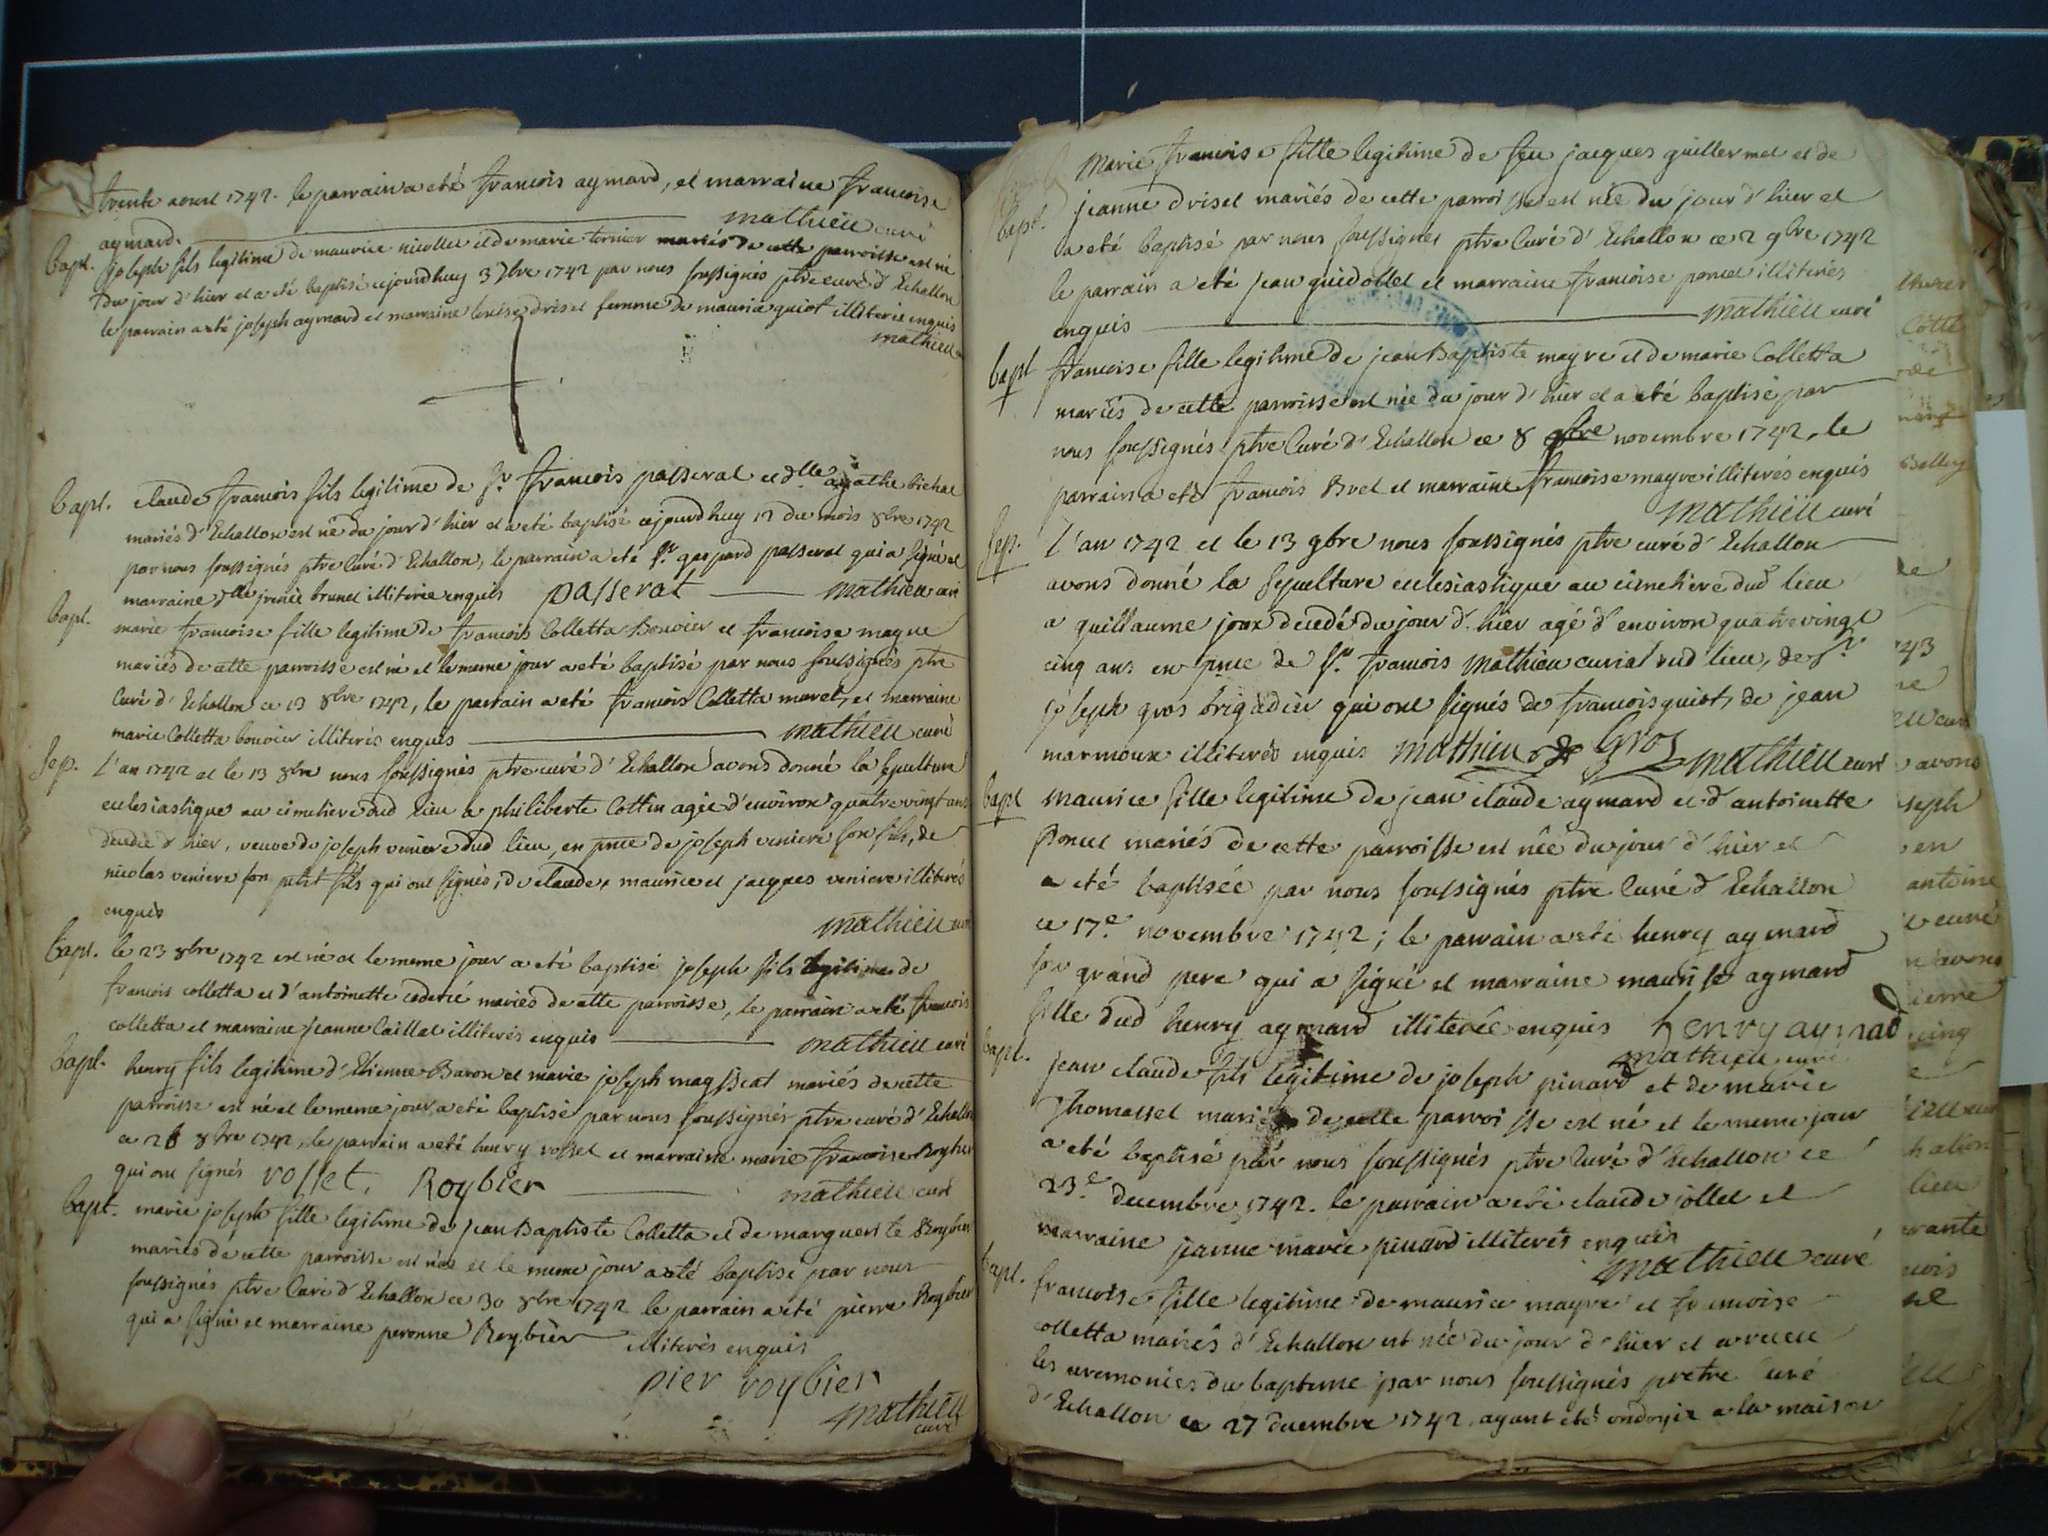 trente aoust 1742. le parrain a eté francois aymard, et marraine francoise
aymard. mathieu curé
bapt. joseph fils legitime de maurice nicollet et de marie ternier mariés de cette parroisse est né
du jour d'hier et a eté baptisé cejourdhuy 3 7bre 1742 par nous soussignés ptre curé d'Echallon
le parrain a eté joseph aymard et marraine louise drisel femme de maurice guiot illiteré enquis
mathieu
bapt. claude francois fils legitime de sr francois passerat et dlle agathe bichat
mariés d'Echallon est né du jour d'hier et a eté baptisé cejourdhuy 12 du mois 8bre 1742
par nous soussignés ptre curé d'Echallon, le parrain a eté sr gaspard passerat qui a signé et
marraine dlle brunet illiterée enquis passerat mathieu curé
bapt. marie francoise fille legitime de francois Colletta Bouvier et francoise mayne
mariés de cette parroisse est né et le meme jour a eté baptisé par nous soussignés ptre
Curé d'Echallon ce 13 8bre 1742, le parrain a eté francois Colletta moret, et marraine
marie Colletta bouvier illiterés enquis mathieu curé
sep. L'an 1742 et le 13 8bre nous soussignés ptre curé d'Echallon avons donné la sepulture
eclesiastique au cimetiere dud lieu a philiberte Cottin agée d'environ quatre vingt ans
decedée d'hier, veuve de joseph veniere dud lieu, en pnce de joseph veniere son fils, de
nicolas veniere son petit fils qui ont signés, de claude, maurice et jacques veniere illiterés
enquis mathieu curé
bapt. le 23 8bre 1742 est né et le meme jour a eté baptisé joseph fils legitime de
francois colletta et d'antoinette mariés de cette parroisse, le parrain a eté francois
colletta et marraine jeanne Caillat illiterés enquis mathieu curé
bapt. henry fils legitime d'Etienne Baron et marie joseph mariés de cette
parroisse est né et le meme jour a eté baptisé par nous soussignés ptre curé d'Echallon
ce 26 8bre 1742, le parrain a eté henry rosset et marraine marie francoise Roybier
qui ont signés rosset. Roybier mathieu curé
bapt. marie joseph fille legitime de jean Baptiste Colletta et de marguerite Roybier
mariés de cette parroisse est née et le meme jour a eté baptisé par nous
soussignés ptre Curé d'Echallon ce 30 8bre 1742 le parrain a eté pierre Roybier
qui a signé et marraine peronne Roybier illiterés enquis
pier roybier
mathieu
curé
bapt. Marie francoise fille legitime de feu jacques guillermet et de
jeanne drisel mariés de cette parroisse est née du jour d'hier et
a eté baptisé par nous soussignés ptre Curé d'Echallon ce 2 9bre 1742
le parrain a eté jean guidollet et marraine francoise poncet illiterés
enquis mathieu curé
bapt francoise fille legitime de jean Baptiste mayre et de marie Colletta
mariés de cette parroisse est née du jour d'hier et a eté baptisé par
nous soussignés ptre Curé d'Echallon ce 8 9bre novembre 1742, le
parrain a eté francois Bret et marraine francoise mayre illiterés enquis
mathieu curé
sep. L'an 1742 et le 13 9bre nous soussignés ptre curé d'Echallon
avons donné la sepulture eclesiastique au cimetiere dud lieu
a guillaume joux decedé du jour d'hier agé d'environ quatre vingt
cinq ans en pnce de sr francois mathieu curial dud lieu, de sr
joseph gros brigadier qui ont signés de francois guiot, de jean
marmoux illiterés enquis mathieu Gros mathieu curé
bapt maurice fille legitime de jean claude aymard et d'antoinette
Poncet mariés de cette parroisse est née du jour d'hier et
a eté baptisée par nous soussignés ptre Curé d'Echallon
ce 17e novembre 1742; le parrain a eté henry aymard
son grand pere qui a signé et marraine maurise aymard
fille dud henry aymard illiterée enquis henry aymad
mathieu curé
bapt. jean claude fils legitime de joseph pinard et de marie
Thomasset mariés de cette parroisse est né et le meme jour
a eté baptisé par nous soussignés ptre Curé d'Echallon ce
23e decembre 1742. le parrain a eté claude jollet et
marraine jeanne marie pinard illiterés enquis
mathieu curé
bapt. francoise fille legitime de maurice mayre et francoise
colletta mariés d'Echallon est née du jour d'hier et a receu
les ceremonies du bapteme par nous soussignés pretre curé
d'Echallon ce 27 decembre 1742. ayant eté ondoyée a la maison